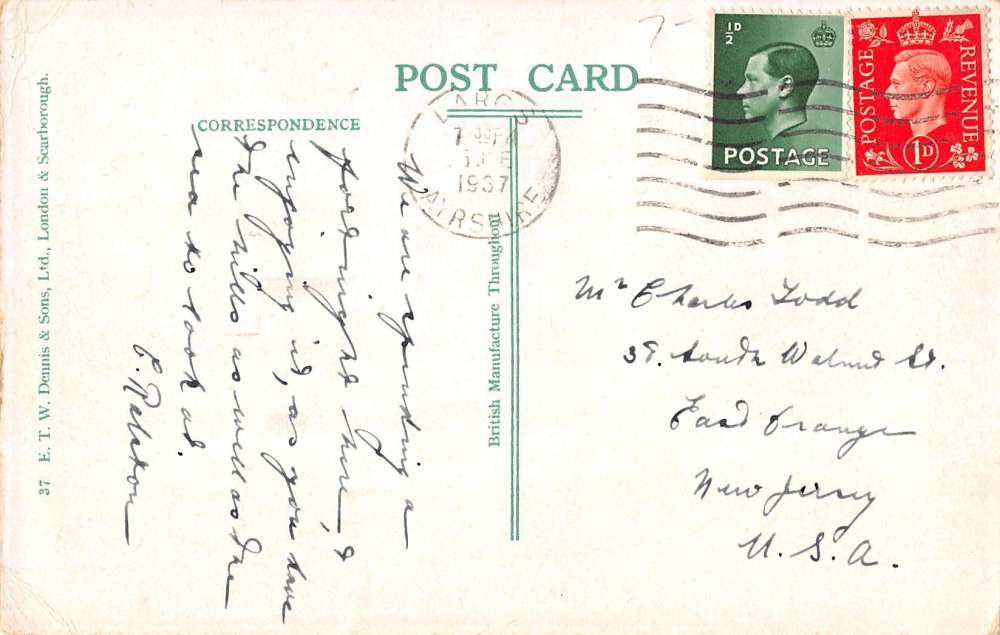 POST CARD
CORRESPONDENCE
37 E. T. W. Dennis & Sons, Ltd., London & Scarborough.
British Manufacture Throughout
LARGS
1937
AYRSHIRE
½D
POSTAGE
POSTAGE
REVENUE
1D
7-
We are spending a
fortnight here, &
enjoying it, as you have
the hills as well as the
sea to look at.
Mr Charles Todd
38. South Walnut St.
East Orange
New Jersey
U. S. A.